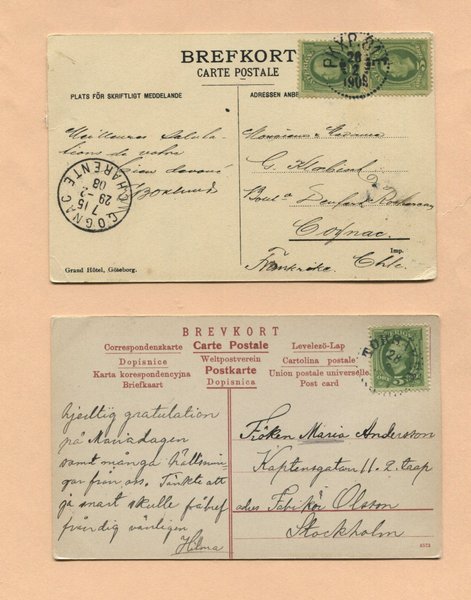 BREFKORT
CARTE POSTALE
PLATS FÖR SKRIFTLIGT MEDDELANDE
ADRESSEN ANBE
PKXP
1908
5
Meilleures Saluta-
tions de votre
bien dévoué
Monsieur & Madame
Cognac
Frankrike. Chte.
Imp.
COGNAC CHARENTE
7 15
29 -3
08
Grand Hôtel, Göteborg.
BREVKORT
Correspondenzkarte
Carte Postale
Levelező-Lap
Dopisnice
Weltpostverein
Cartolina postale
Karta korespondencyjna
Postkarte
Union postale universelle
Briefkaart
Dopisnica
Post card
5
hjertlig gratulation
på Mariadagen
samt många hälsnin-
gar från oss. Tänkte att
ja snart skulle få bref
från dig vänligen
Hilma
Fröken Maria Andersson
Kaptensgatan 11. 2 trapp
adres Fabrikör Olsson
Stockholm